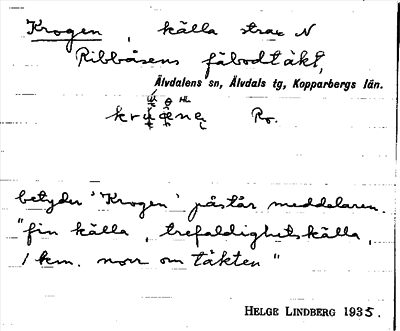 Krogen, källa strax N
Ribbåsens fäbodtäkt,
Älvdalens sn, Älvdals tg, Kopparbergs län.
Ro.
betyder 'Krogen' påstår meddelaren.
"fin källa, trefaldighetskälla,
1 km. norr om täkten"
HELGE LINDBERG 1935.